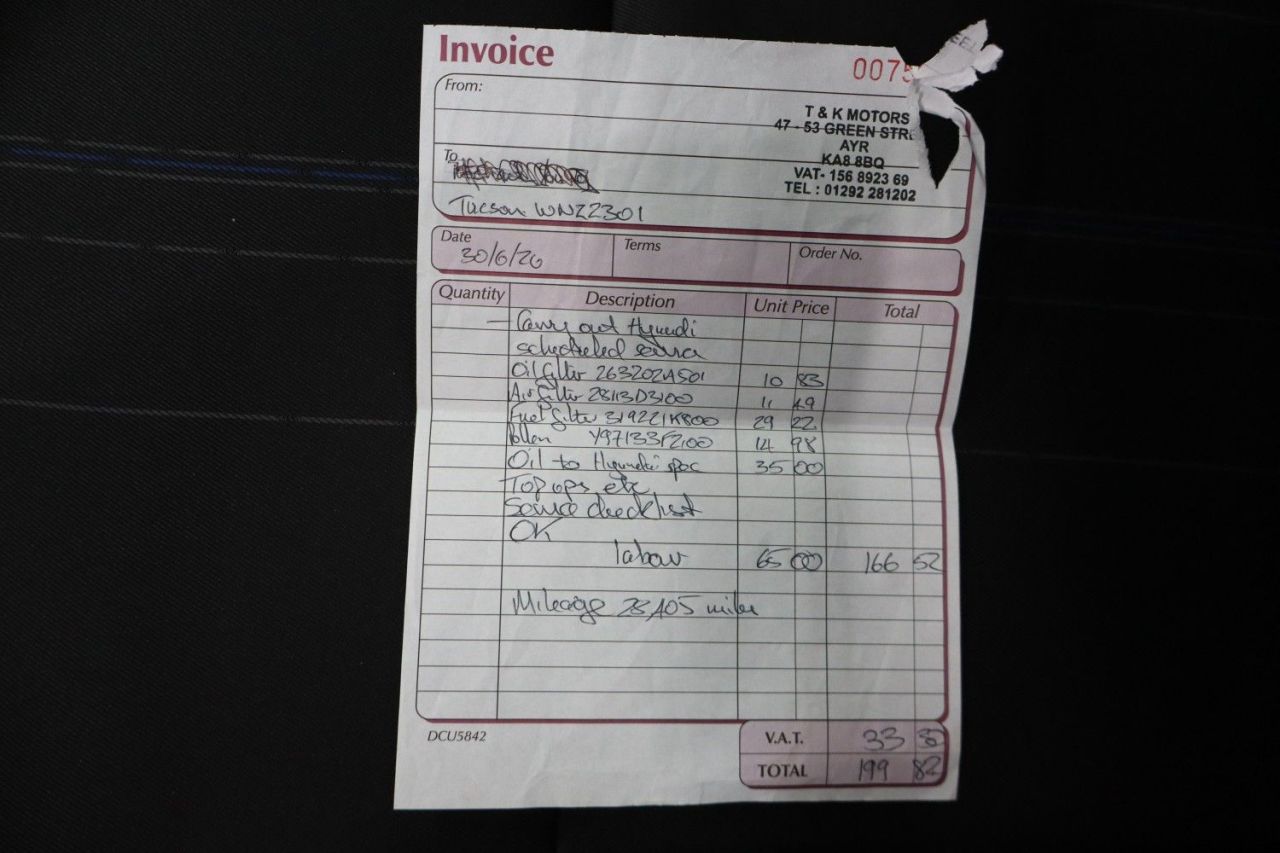 Invoice
0075
From:
T & K MOTORS
47 - 53 GREEN STRE
AYR
KA8 8BQ
VAT- 156 8923 69
TEL : 01292 281202
To
Tucson WNZ2301
Date
30/6/20
Terms
Order No.
Quantity Description Unit Price Total
— Carry out Hyundi
scheduled service
Oil filter 263202A501 10 83
Air filter 28113D3100 11 49
Fuel filter 319221K800 29 22
Pollen Y97133F2100 14 98
Oil to Hyundai spec 35 00
Top ops etc
Service checklist
OK
labour 65 00 166 52
Mileage miles
DCU5842
V.A.T. 33 30
TOTAL 199 82